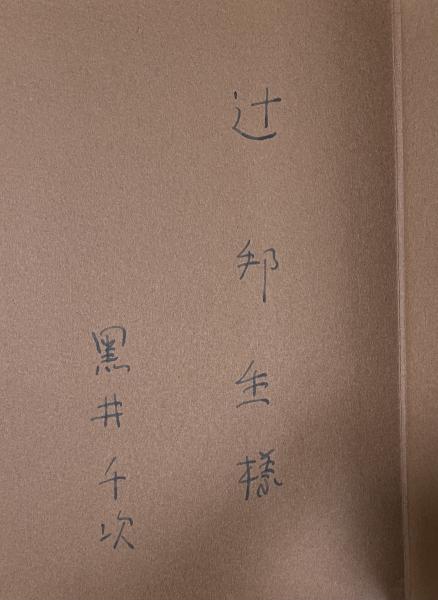 辻邦生様
黒井千次